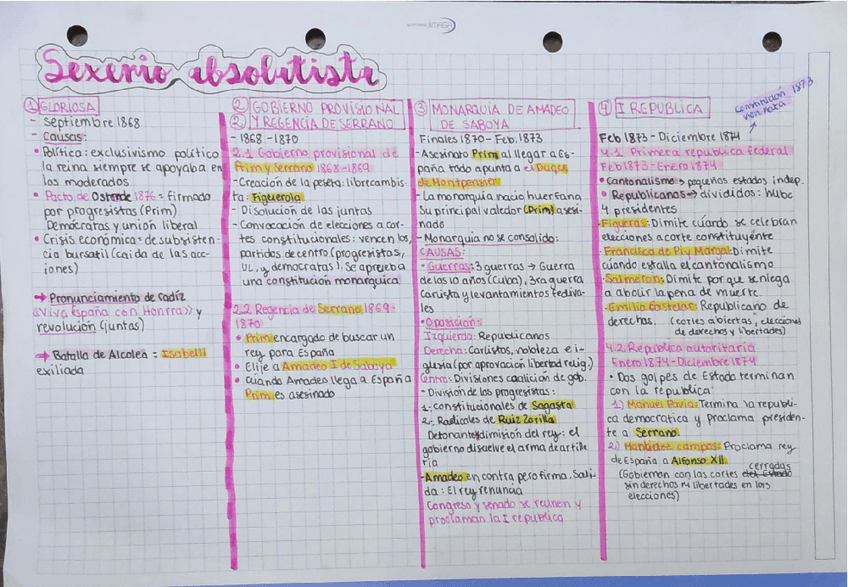 IMAGA
Sexenio absolutista
① GLORIOSA
- Septiembre 1868
- Causas:
• Política: exclusivismo político
la reina siempre se apoyaba en
los moderados
• Pacto de Ostende 1876 = firmado
por progresistas (Prim)
Demócratas y unión liberal
• Crisis económica = de subsisten-
cia bursatil (caida de las acc-
iones)
→ Pronunciamiento de cadiz
«Viva España con Honrra» y
revolución (juntas)
→ Batalla de Alcolea = Isabel II
exiliada
② GOBIERNO PROVISIONAL
③ Y REGENCIA DE SERRANO
- 1868 - 1870
2.1 Gobierno provisional de
Prim y Serrano 1868-1869
- Creación de la peseta: librecambis-
ta: Figuerola
- Disolución de las juntas
- Convocación de elecciones a cor-
tes constitucionales: vencen los
partidos de centro (progresistas,
UL, y democratas). Se aprueba
una constitución monarquica
2.2 Regencia de Serrano 1869-
1870:
• Prim encargado de buscar un
rey para España
• Elije a Amadeo I de Saboya
• Cuando Amadeo llega a España
Prim es asesinado
③ MONARQUIA DE AMADEO
DE SABOYA
Finales 1870 - Feb. 1873
- Asesinato Prim al llegar a Es-
paña todo apunta a el Duque
de Montpensier
- La monarquia nacio huerfana
Su principal valedor (Prim) asesi-
nado
- Monarquia no se consolido:
CAUSAS:
• Guerras: 3 guerras → Guerra
de los 10 años (Cuba), 3ra guerra
Carlista y levantamientos federa-
les
• Oposición:
Izquierda: Republicanos
Derecha: Carlistos, nobleza e i-
glesia (por aprovación libertad relig.)
Centro: Divisiones coalicion de gob.
- División de los progresistas:
1: constitucionales de Sagasta
2: Radicales de Ruiz Zorilla
Detonante dimision del rey: el
gobierno disuelve el arma de artille
ria
- Amadeo en contra pero firma. Sali-
da: El rey renuncia
Congreso y senado se reunen y
proclaman la I republica
④ I REPUBLICA
constitucion 1873
non nata
Feb 1873 - Diciembre 1874
4.1 Primera republica federal
Feb 1873 - Enero 1874
• Cantonalismo → pequeños estados indep.
• Republicanos → divididos: hubo
4 presidentes
- Figueras: Dimite cuándo se celebran
elecciones a corte constituyente
- Francisco de Pi y Margal: Dimite
cuándo estalla el cantonalismo
- Salmeron: Dimite por que se niega
a abolir la pena de muerte.
- Emilio Castelar: Republicano de
derechas. (cortes abiertas, elecciones
de derechos y libertades)
4.2 Republica autoritaria
Enero 1874 - Diciembre 1874
• Dos golpes de Estado terminan
con la republica:
1.) Manuel Pavia: Termina la republi-
ca democratica y proclama presiden-
te a Serrano.
2.) Martinez campos: Proclama rey
de España a Alfonso XII
(Gobiernan con las cortes cerradas
sin derechos ni libertades en las
elecciones)